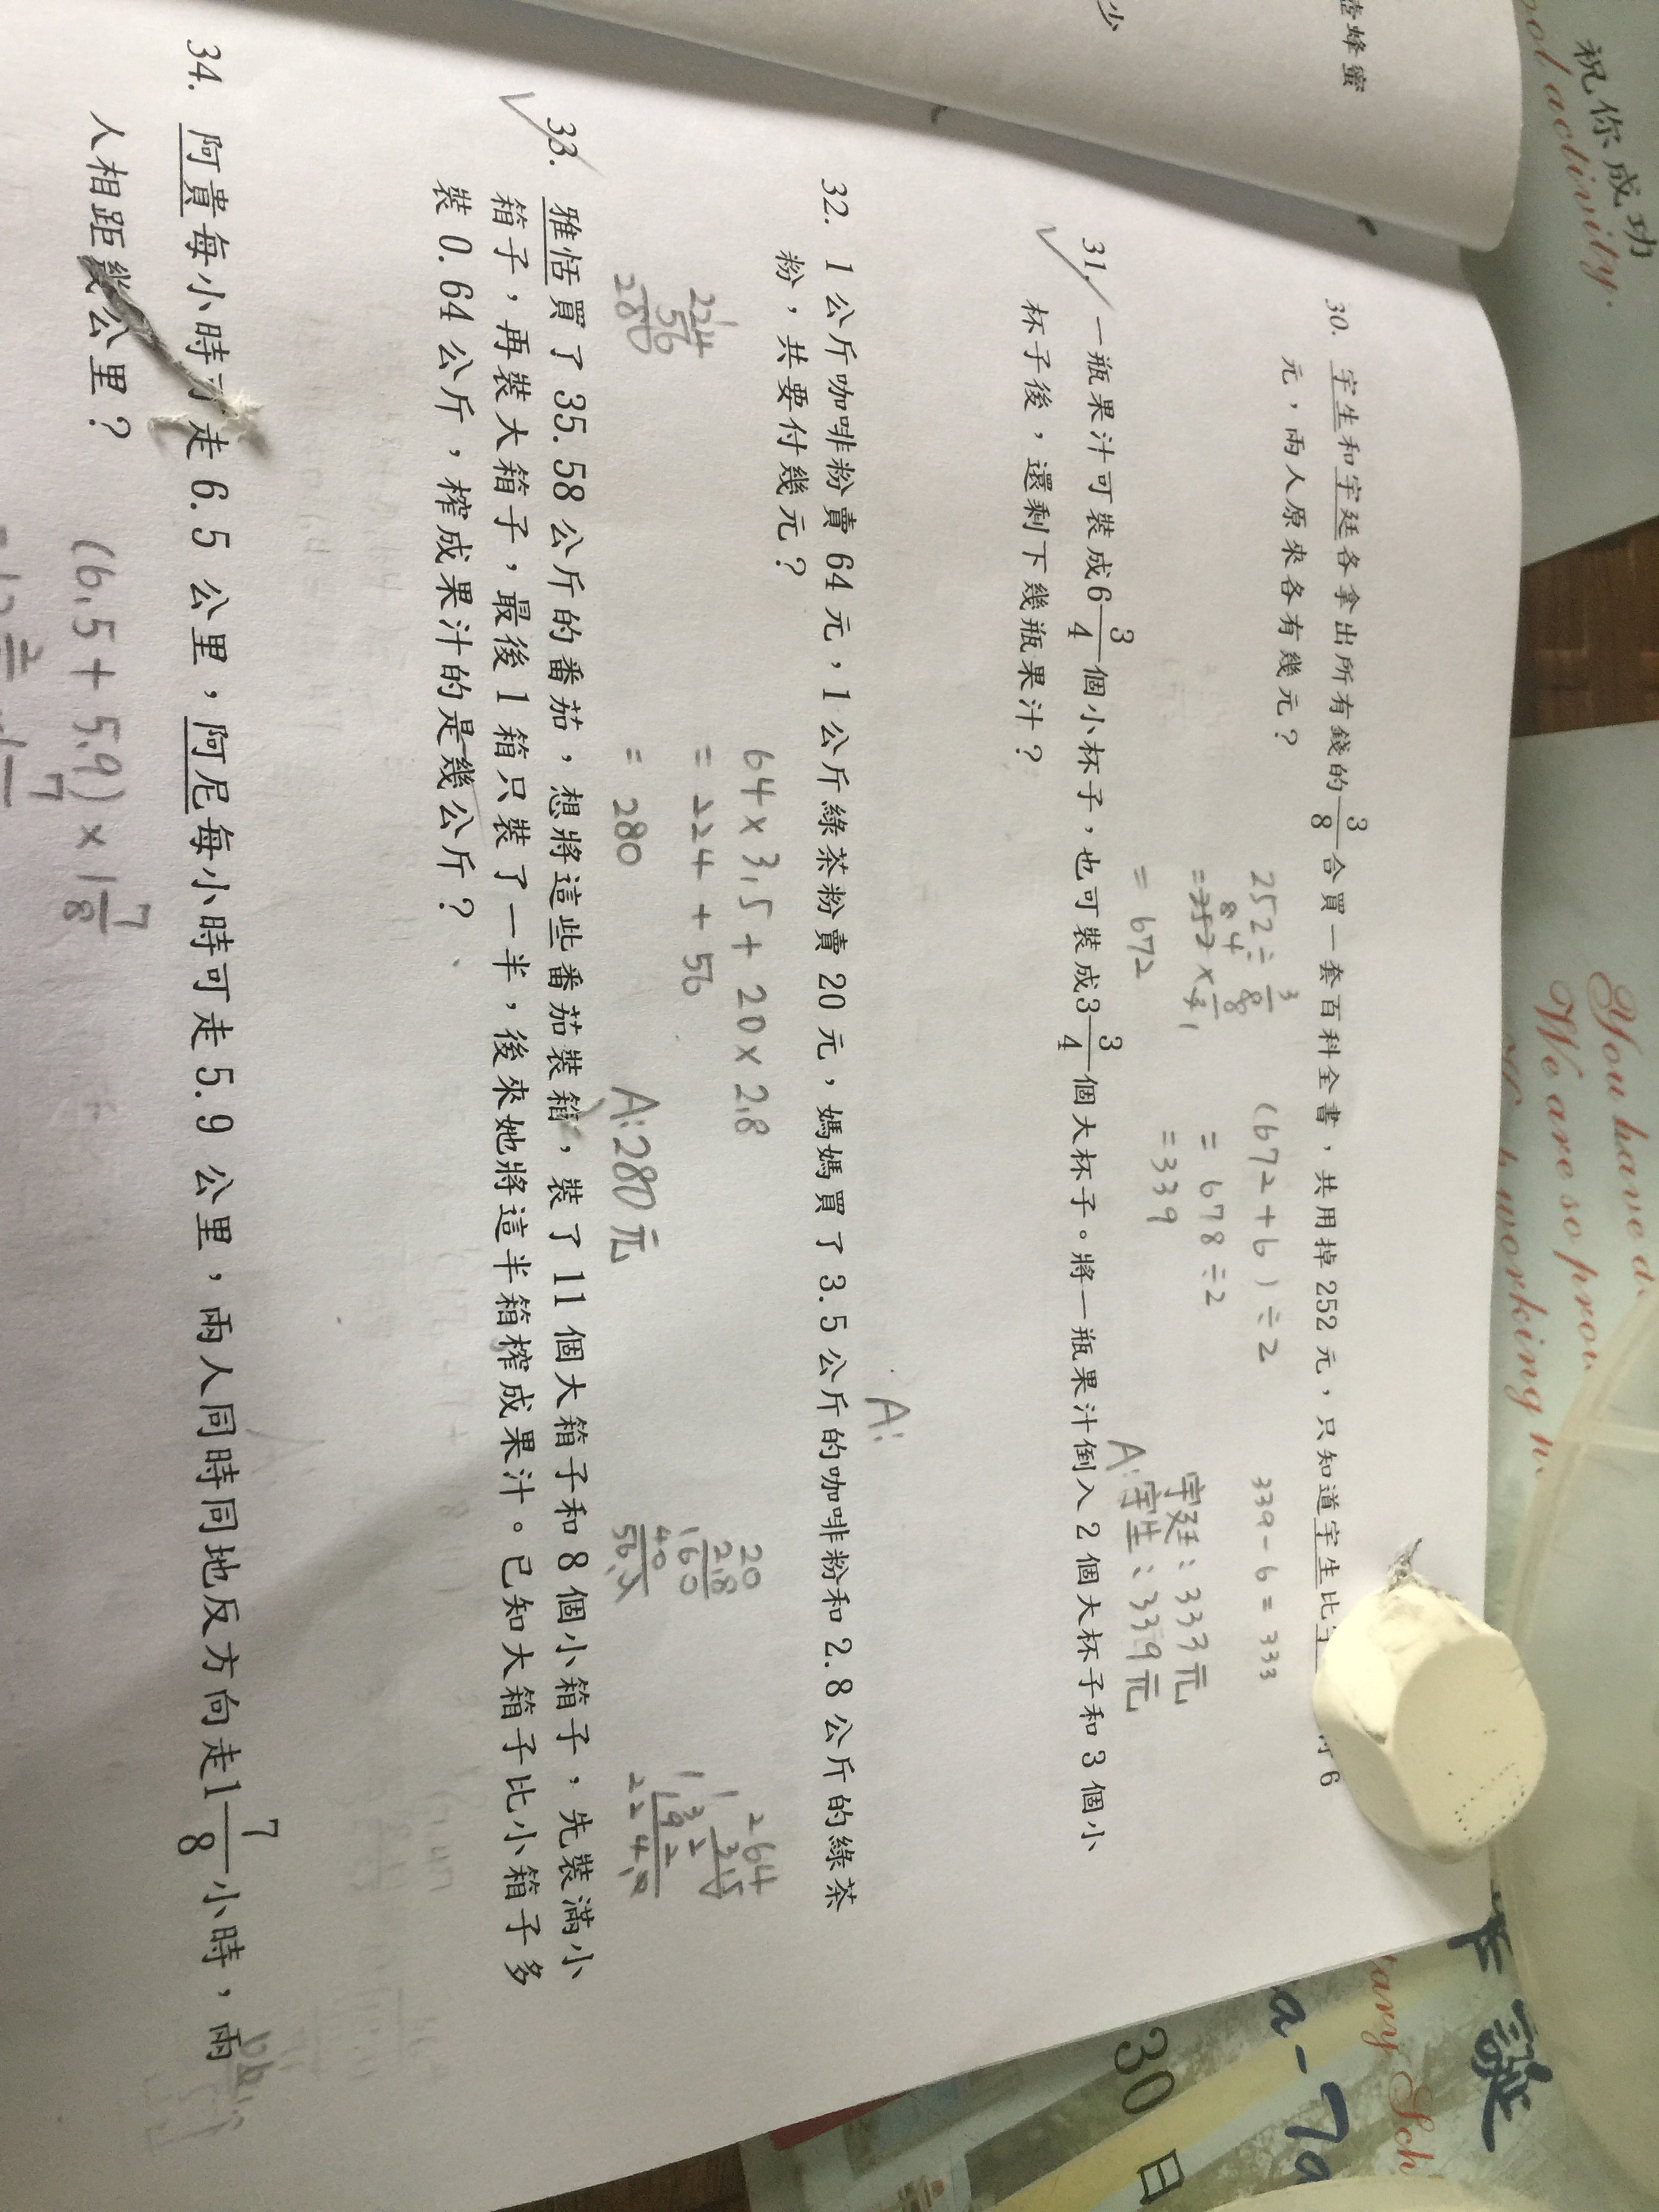 祝你成功
ool activity.
You have d
We are so prou
working h
蜂蜜
少
30. 宇生和宇廷各拿出所有錢的3/8合買一套百科全書，共用掉252元，只知道宇生比
6
元，兩人原來各有幾元？
252÷3/8
=252×8/3
84
1
=672
(672+6)÷2
=678÷2
=339
339-6=333
宇廷：333元
A:宇生：339元
31. 一瓶果汁可裝成6 3/4個小杯子，也可裝成3 3/4個大杯子。將一瓶果汁倒入2個大杯子和3個小
杯子後，還剩下幾瓶果汁？
A:
32. 1公斤咖啡粉賣64元，1公斤綠茶粉賣20元，媽媽買了3.5公斤的咖啡粉和2.8公斤的綠茶
粉，共要付幾元？
64×3.5+20×2.8
=224+56
=280
A:280元
224
56
280
20
2.8
160
40
56.0
64
3.5
320
192
224.0
33. 雅恬買了35.58公斤的番茄，想將這些番茄裝箱，裝了11個大箱子和8個小箱子，先裝滿小
箱子，再裝大箱子，最後1箱只裝了一半，後來她將這半箱榨成果汁。已知大箱子比小箱子多
裝0.64公斤，榨成果汁的是幾公斤？
34. 阿貴每小時可走6.5公里，阿尼每小時可走5.9公里，兩人同時同地反方向走1 7/8小時，兩
人相距幾公里？
(6.5+5.9)×1 7/8
30
日
a-7a
tary Sch